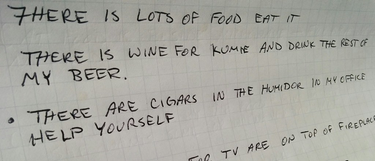 THERE IS LOTS OF FOOD EAT IT
THERE IS WINE FOR KUMIE AND DRINK THE REST OF
MY BEER.
• THERE ARE CIGARS IN THE HUMIDOR IN MY OFFICE
HELP YOURSELF
FOR TV ARE ON TOP OF FIREPLACE